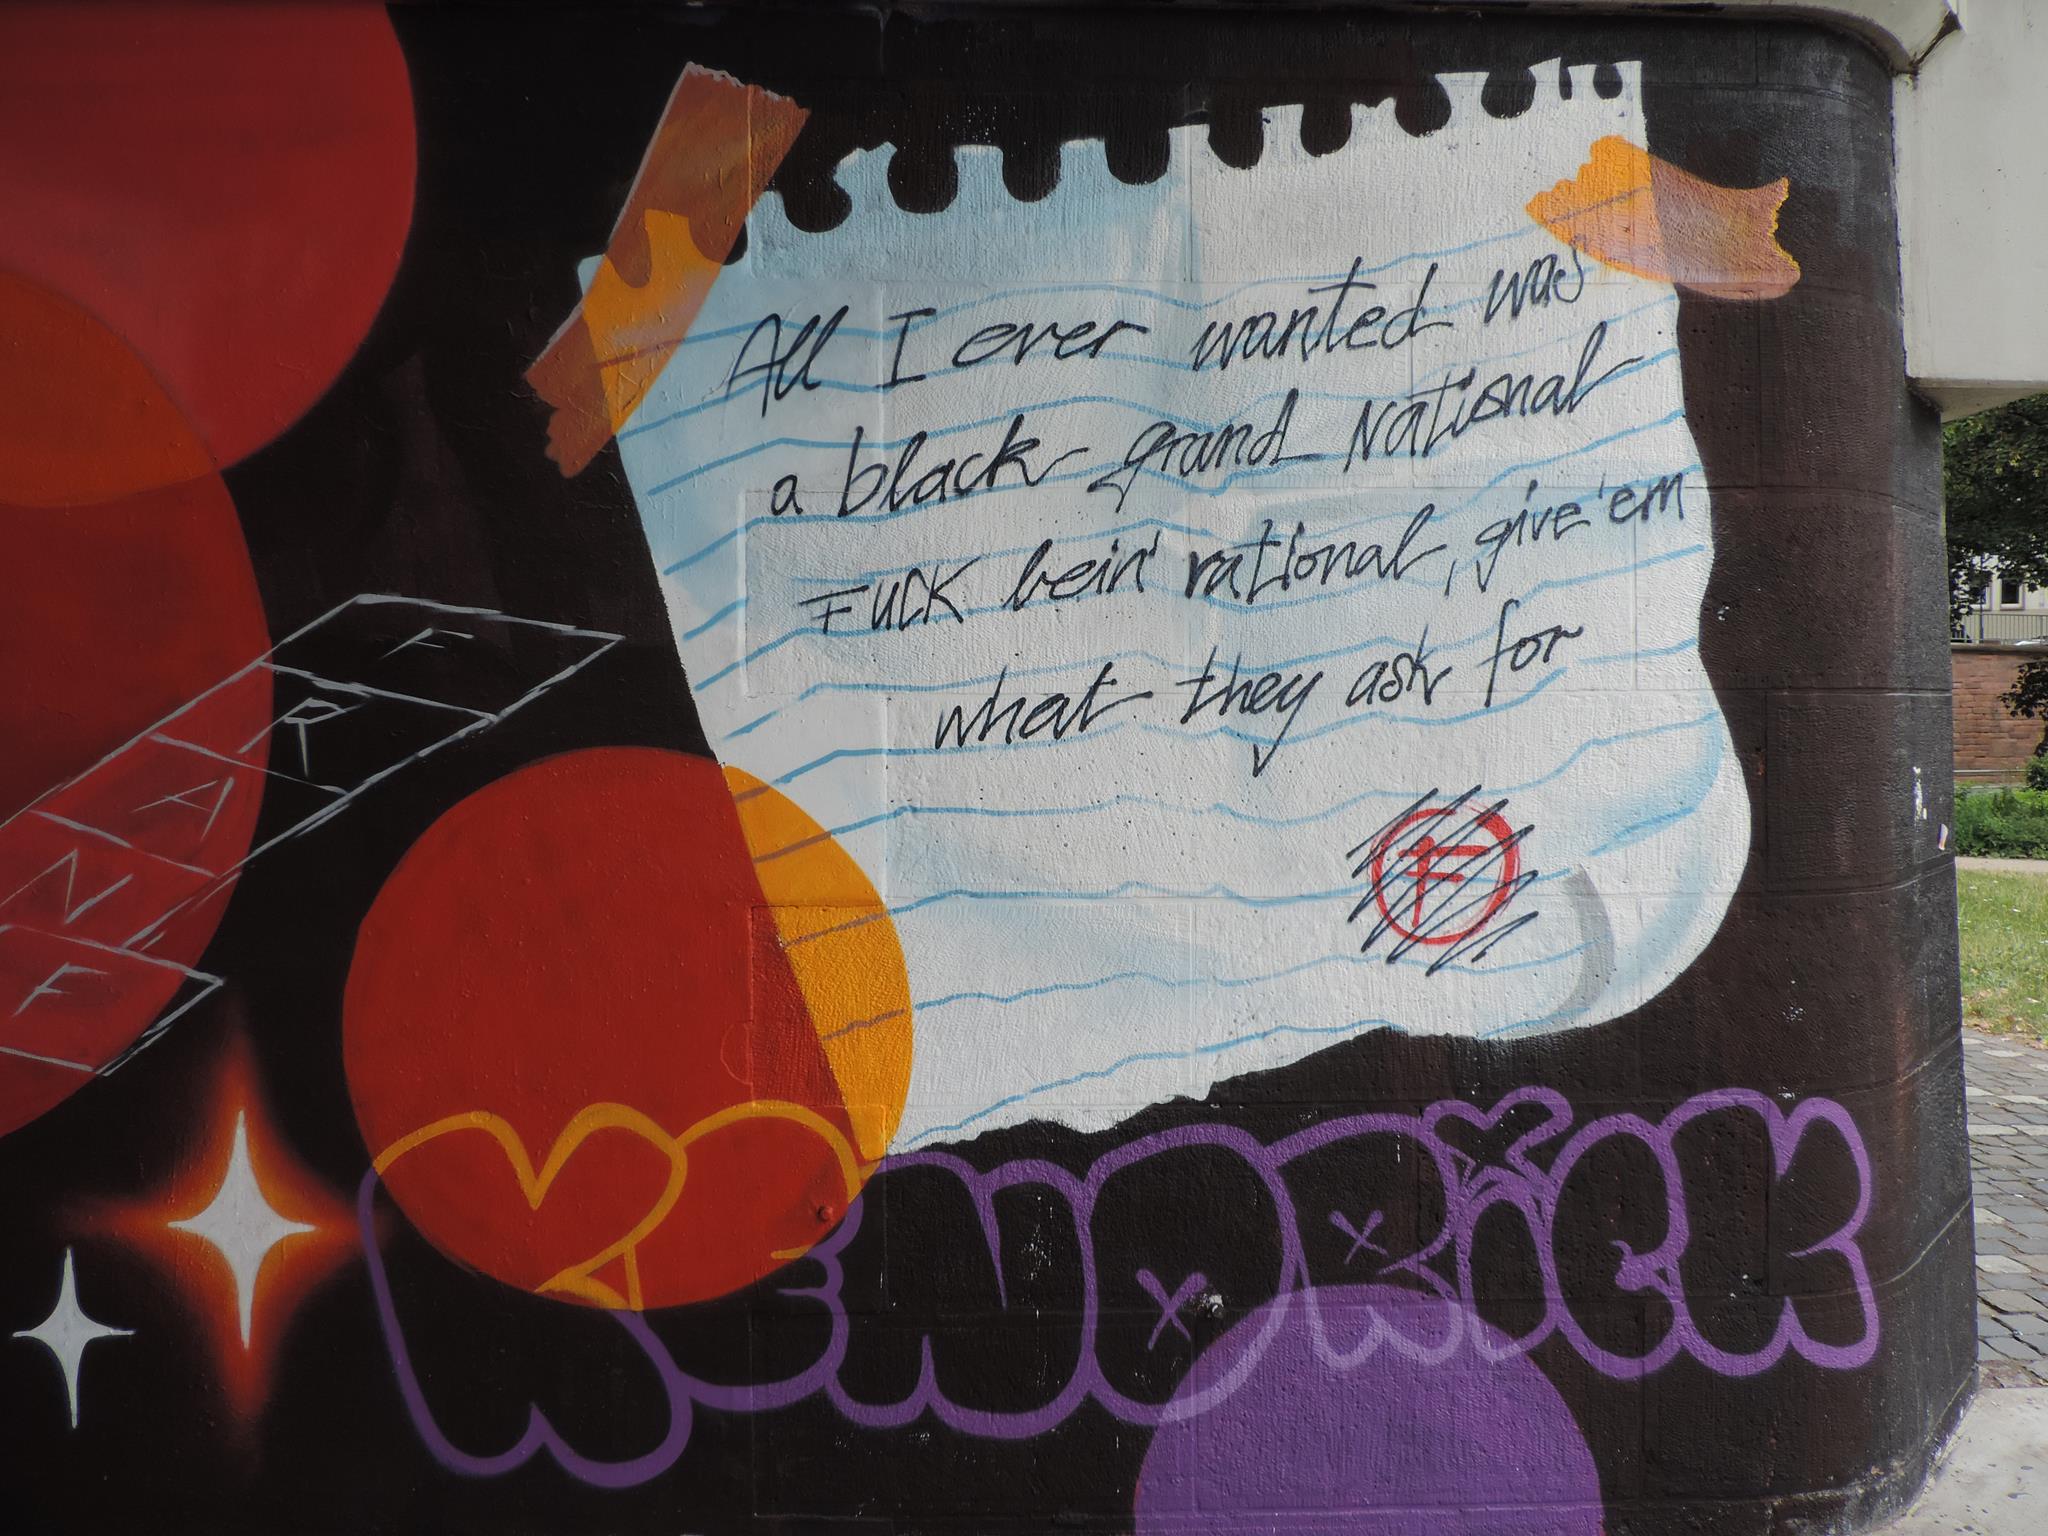 All I ever wanted was
a black grand National
FUCK bein' rational, give 'em
what they ask for
F
F
R
A
N
F
KENDRICK